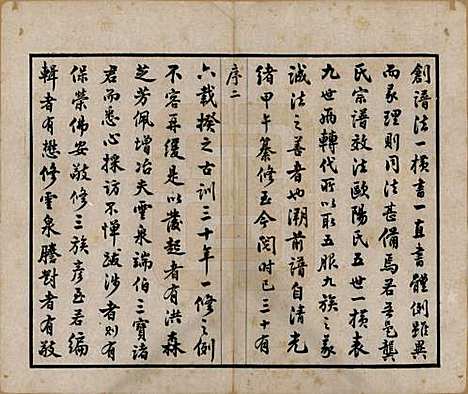 創譜法一橫書一直書體例雖異
而義理則同法甚備焉若吾龔
氏宗譜效法歐陽氏五世一橫表
九世兩轉代所以取五服九族之義
誠法之善者也溯前譜自清光
緒甲午纂修至今閱時已三十有
序二
六載揆之古訓三十年一修之例
不容再緩是以發起者有洪森
芝芳佩增治夫雲泉端伯三寶諸
君而悉心採訪不憚跋涉者則有
保榮佛安敬修三族彥至若編
輯者有懋修雲泉謄對者有敬